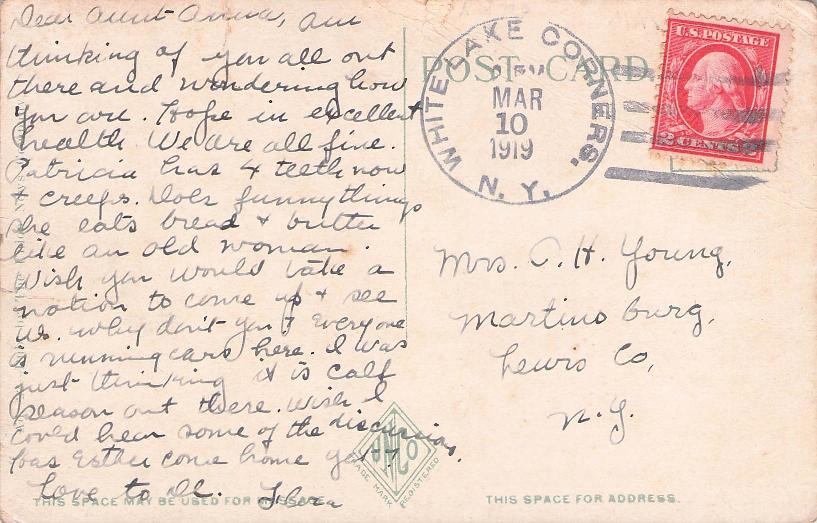 Dear Aunt Anna, Am
thinking of you all out
there and wondering how
you are. Hope in excellent
health We are all fine.
Patricia has 4 teeth now
+ creeps. Does funny things
she eats bread + butter
like an old woman.
Wish you would take a
notion to come up + see
us. Why don't you? Everyone
is running cars here. I was
just thinking it is calf
season out there. Wish I
could hear some of the discussions.
Has Esther come home yet?
Love to all.
POST CARD
WHITE LAKE CORNERS,
MAR
10
1919
N. Y.
U.S. POSTAGE
2 CENTS 2
Mrs. C. H. Young,
Martinsburg,
Lewis Co,
N.Y.
TRADE MARK REGISTERED
THIS SPACE MAY BE USED FOR MESSAGE.
THIS SPACE FOR ADDRESS.